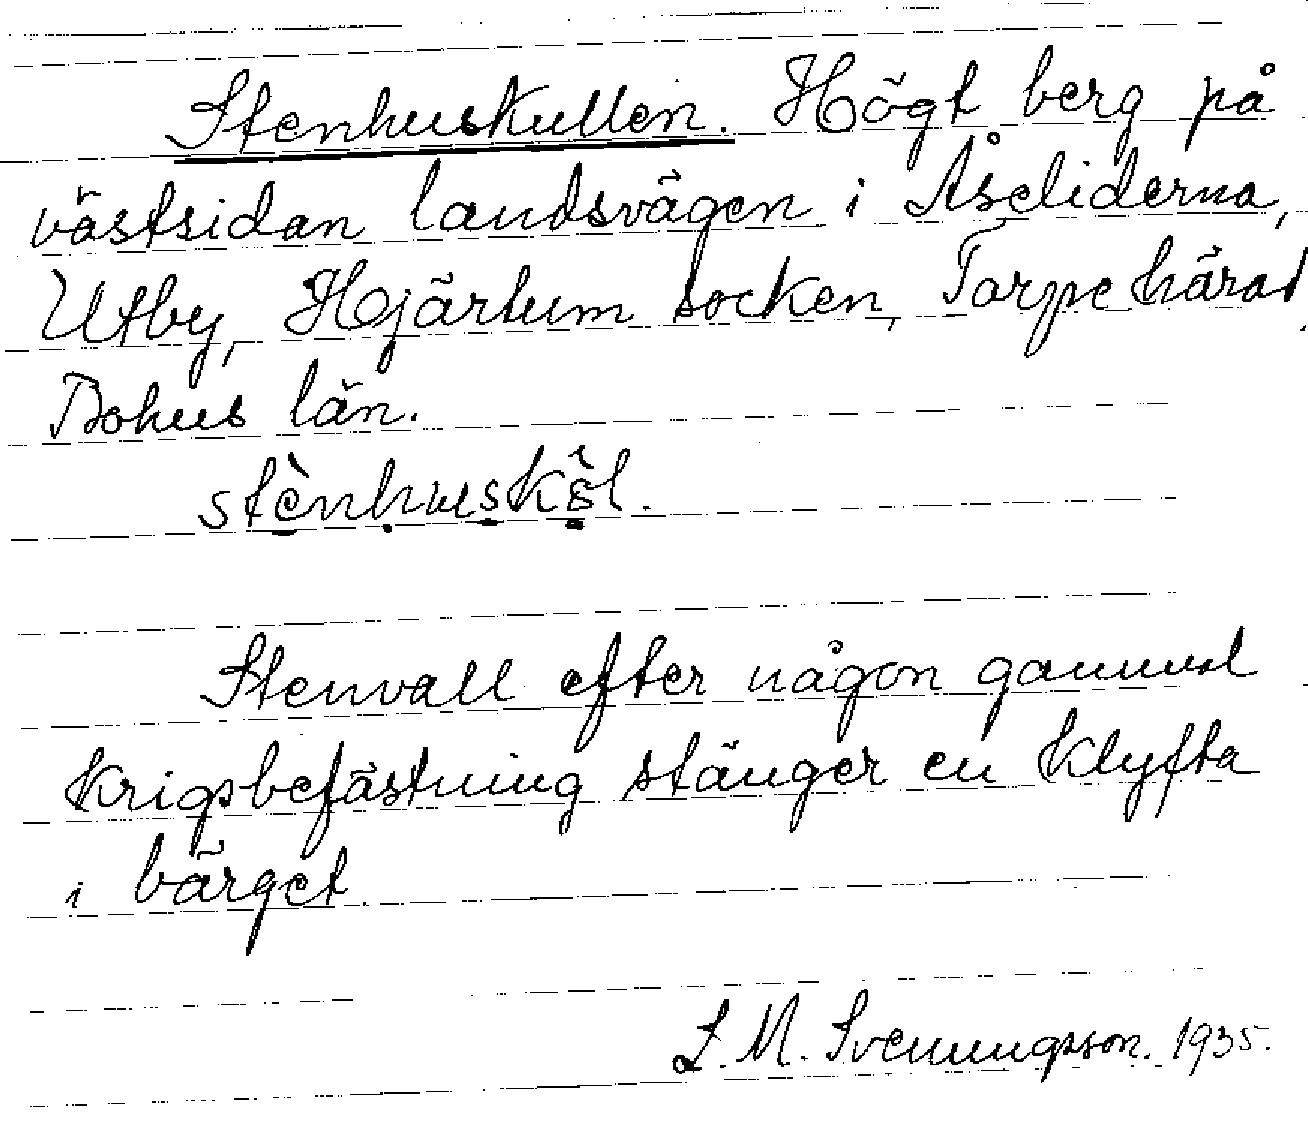 Stenhuskullen. Högt berg på
västsidan landsvägen i Åseliderna,
Utby, Hjärtum socken, Torpe härad
Bohus län.
stènhuskûl.
Stenvall efter någon gammal
krigsbefästning stänger en klyfta
i bärget.
L. M. Svenungsson. 1935.